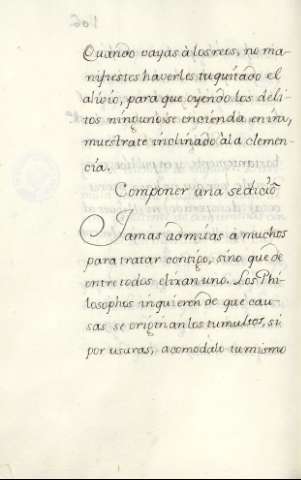 Quando vayas à los reos, no ma-
nifiestes haverles tu quitado el
alivio, para que oyendo los deli-
tos ninguno se encienda en ira,
muestrate inclinado àla clemen-
cia.
Componer una sedicio͂
Jamas admitas à muchos
para tratar contigo, sino que de
entre todos elixan uno. Los Phi-
losophos inquieren de que cau-
sas se originan los tumultos, si
por usuras, acomodalo tu mismo